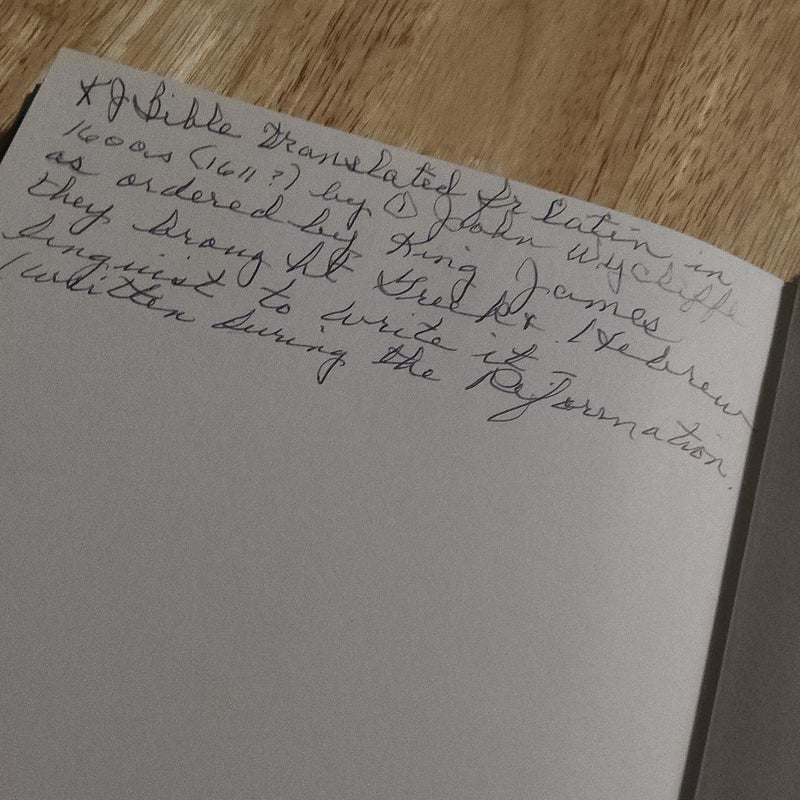 KJ Bible translated fr Latin in
1600s (1611?) by ① John Wycliffe
as ordered by King James
they brought Greek & Hebrew
linguist to write it -
(written during the Reformation.